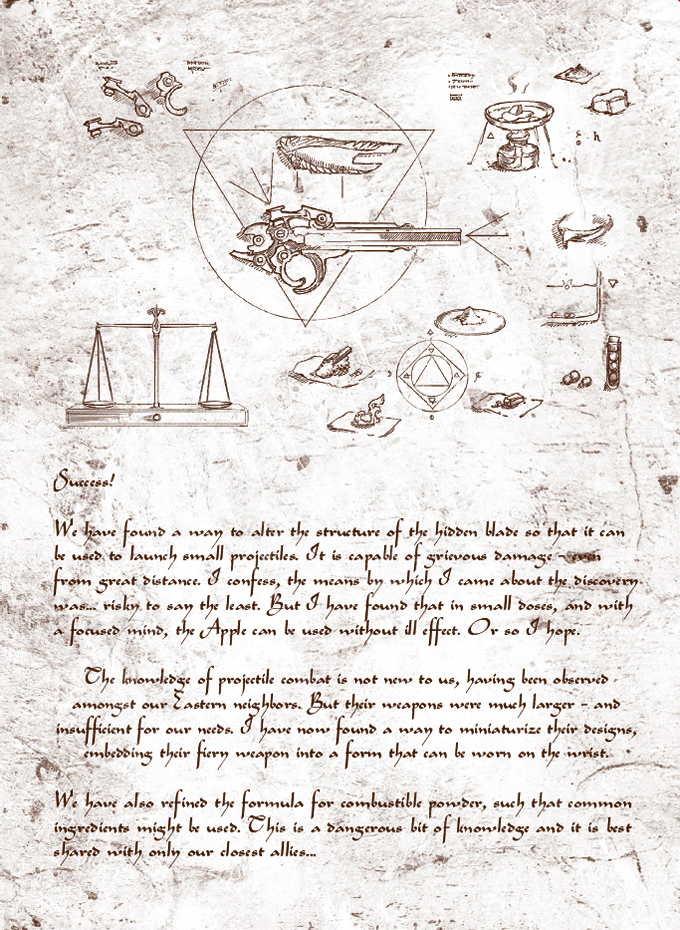 Success!
We have found a way to alter the structure of the hidden blade so that it can
be used to launch small projectiles. It is capable of grievous damage - even
from great distance. I confess, the means by which I came about the discovery
was... risky to say the least. But I have found that in small doses, and with
a focused mind, the Apple can be used without ill effect. Or so I hope.
The knowledge of projectile combat is not new to us, having been observed
amongst our Eastern neighbors. But their weapons were much larger - and
insufficient for our needs. I have now found a way to miniaturize their designs,
embedding their fiery weapon into a form that can be worn on the wrist.
We have also refined the formula for combustible powder, such that common
ingredients might be used. This is a dangerous bit of knowledge and it is best
shared with only our closest allies...